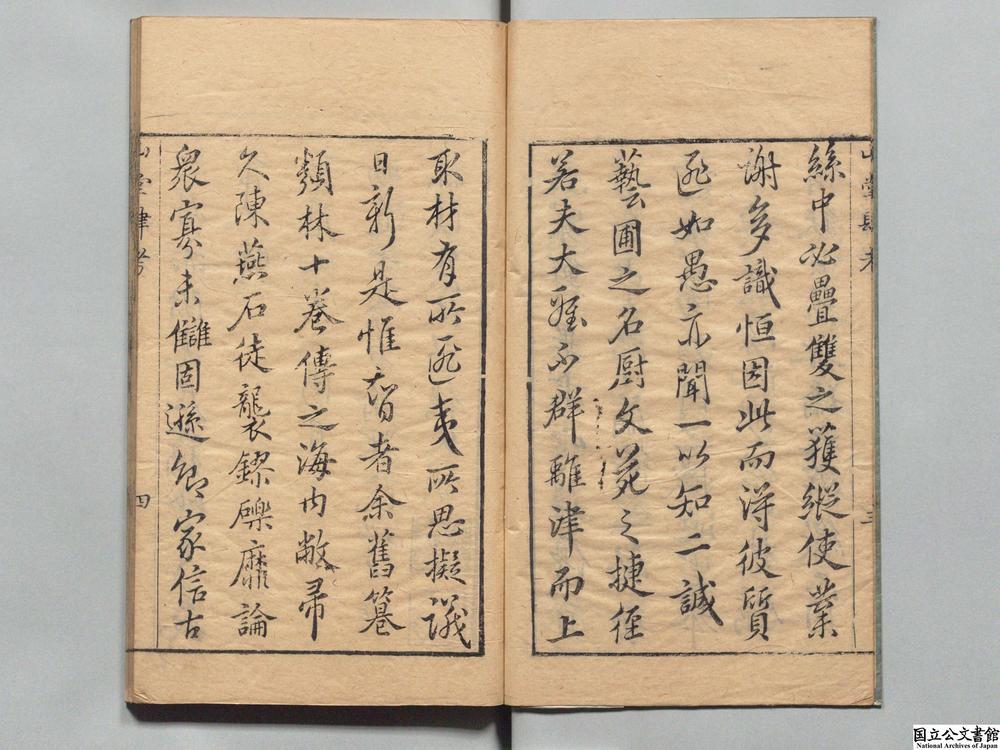 絲中必疊雙之獲縱使業
謝多識恒因此而得彼質
逊如愚亦聞一以知二誠
藝圃之名厨文苑之捷徑
若夫大雅不群離津而上
三
取材有所逊夷所思擬議
日新是惟智者余舊篹
類林十卷傳之海內敝帚
久陳燕石徒襲鏐礫靡論
衆寡未讎固遜卿家信古
山堂肆考
四
国立公文書館
National Archives of Japan